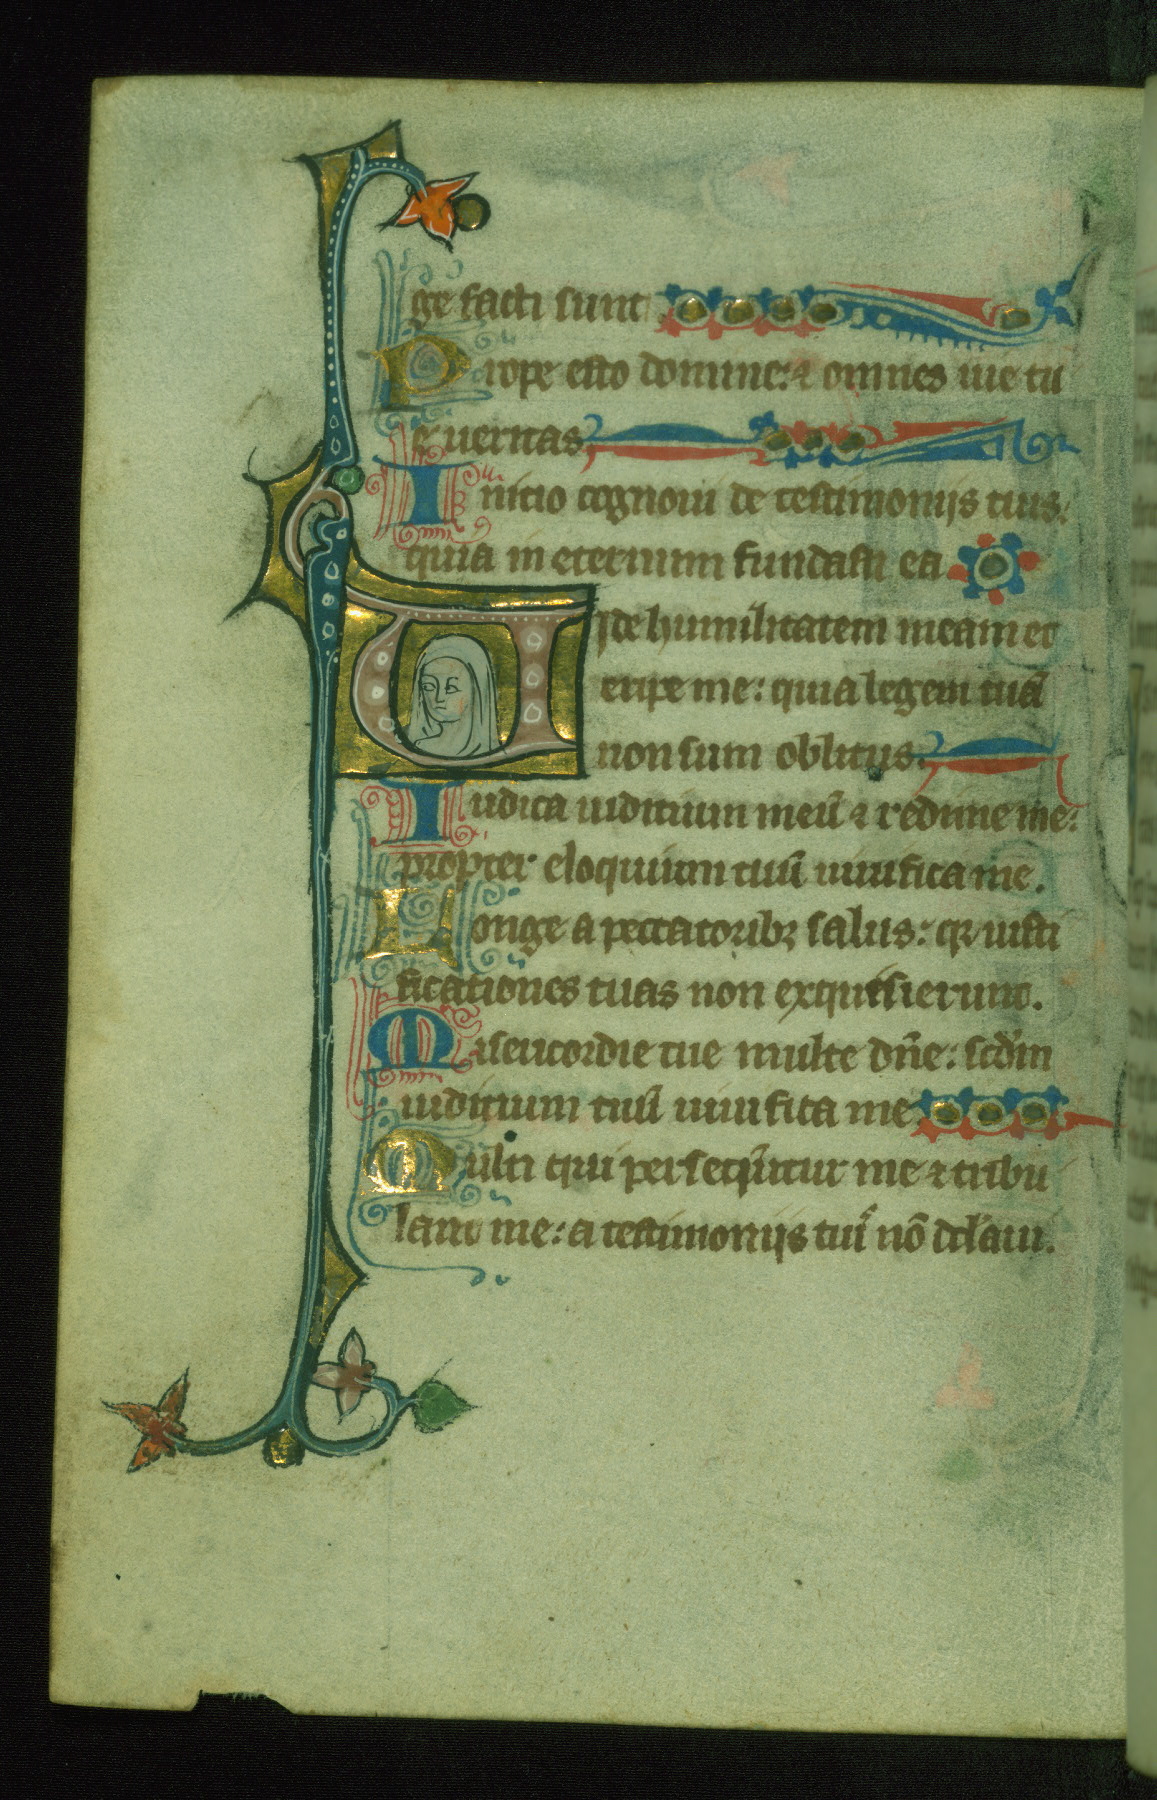 ge facti sunt
Prope esto domine: ⁊ omnes uie tu
e ueritas
Initio cognoui de testimonijs tuis:
quia in eternum fundasti ea
Vide humilitatem meam et
eripe me: quia legem tuā
non sum oblitus.
Iudica iuditium meū ⁊ redime me:
propter eloquium tuū uiuifica me.
Longe a peccatoribꝫ salus: qꝛ iusti
ficationes tuas non exquisierunt.
Misericordie tue multe dn̄e: scd̄m
iuditium tuū uiuifica me
Multi qui persequūtur me ⁊ tribu
lant me: a testimonijs tuī nō dcl̄aui.